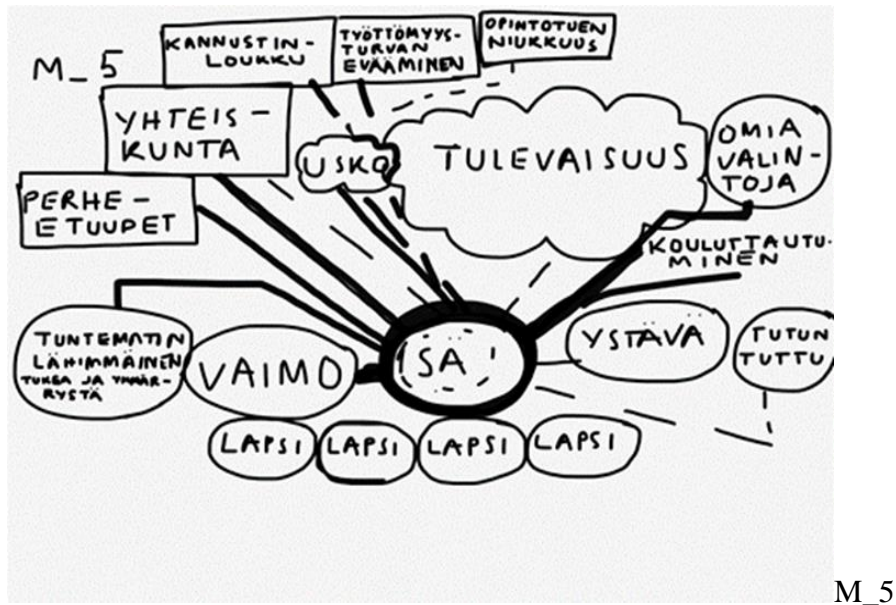 M_5
KANNUSTIN-
LOUKKU
TYÖTTÖMYYS-
TURVAN
EVÄÄMINEN
OPINTOTUEN
NIUKKUUS
YHTEIS-
KUNTA
USKO
TULEVAISUUS
OMIA
VALIN-
TOJA
PERHE-
ETUUDET
KOULUTTAUTU-
MINEN
TUNTEMATIN
LÄHIMMÄINEN
TUKEA JA YMMÄR-
RYSTÄ
VAIMO
SÄ
YSTÄVÄ
TUTUN
TUTTU
LAPSI
LAPSI
LAPSI
LAPSI
M_5